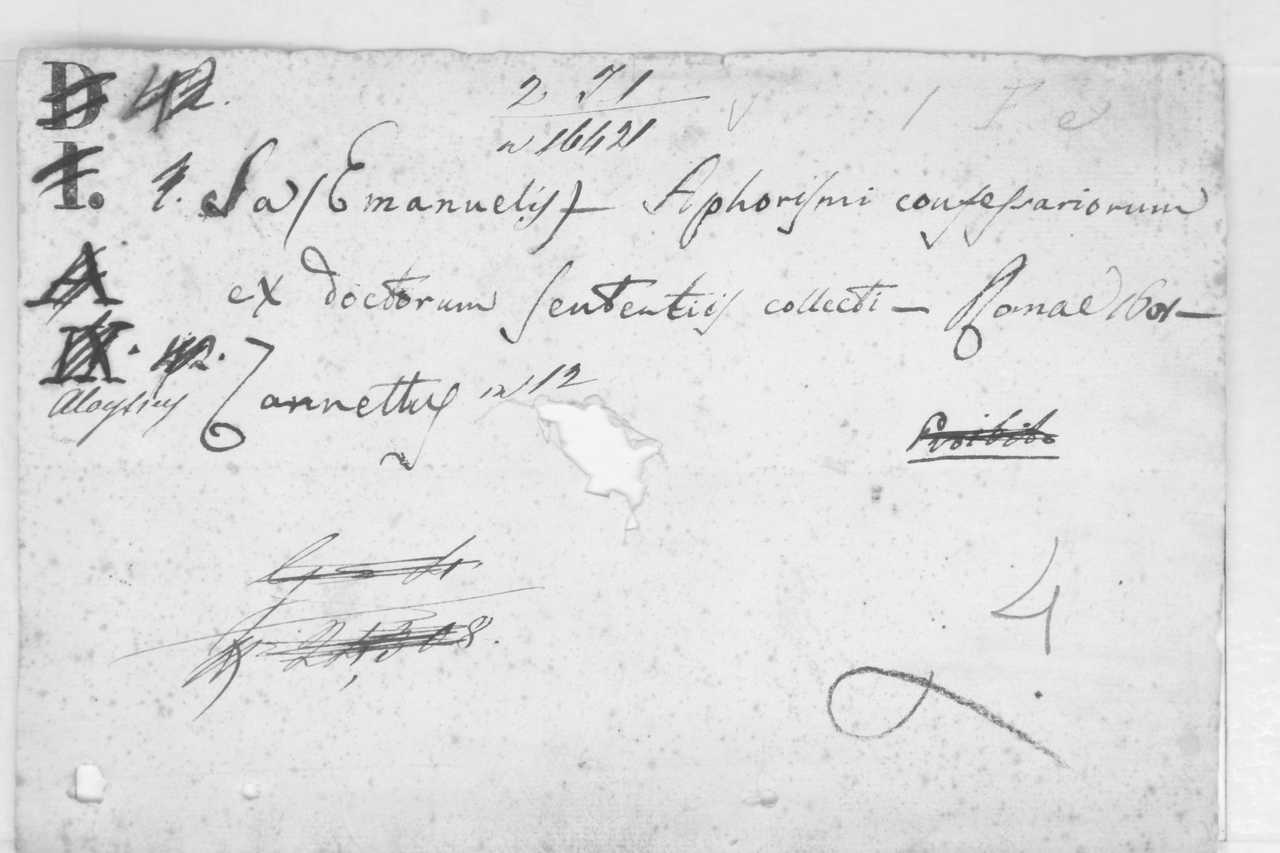 D 42.
2 71
n 16421
I. 1. Sa (Emanuelis) — Aphorismi confessariorum
A ex doctorum sententiis collecti — Romae 1601 —
IX. 42.
Aloysius Zannettus in 12
Proibito
4.